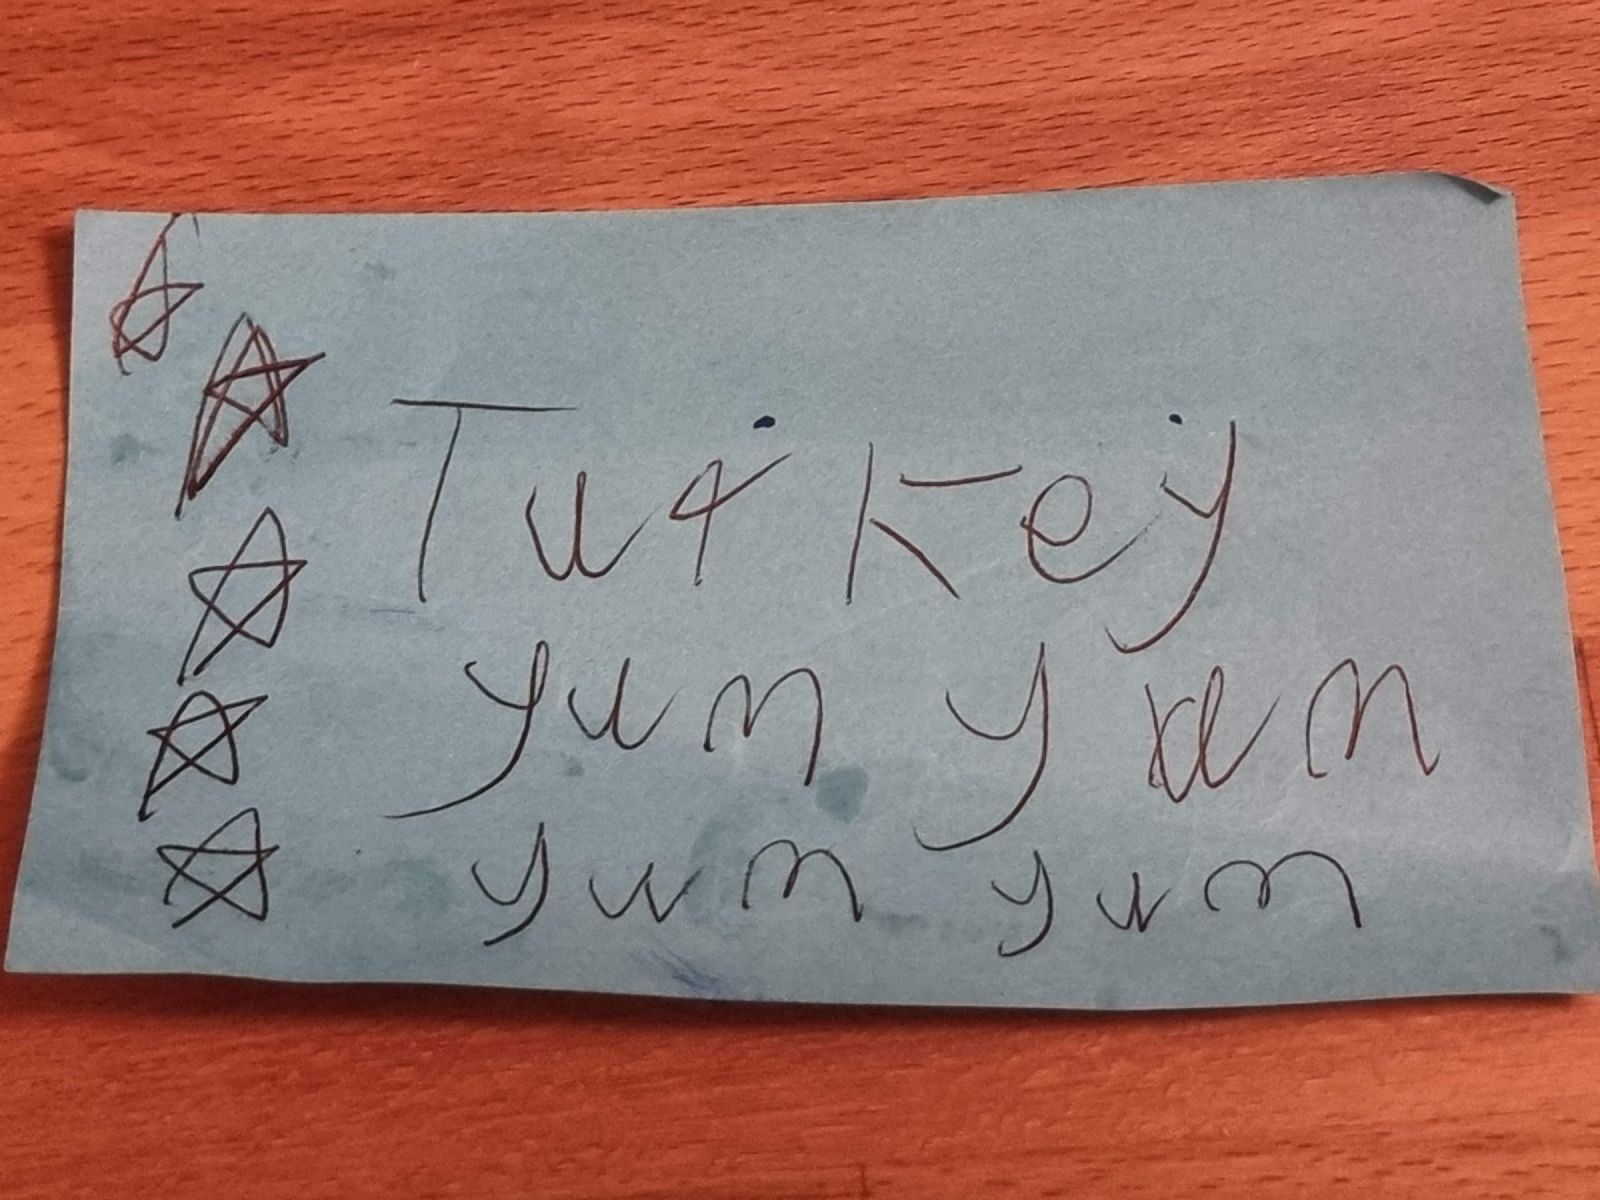 Turkey
yum yum
yum yum